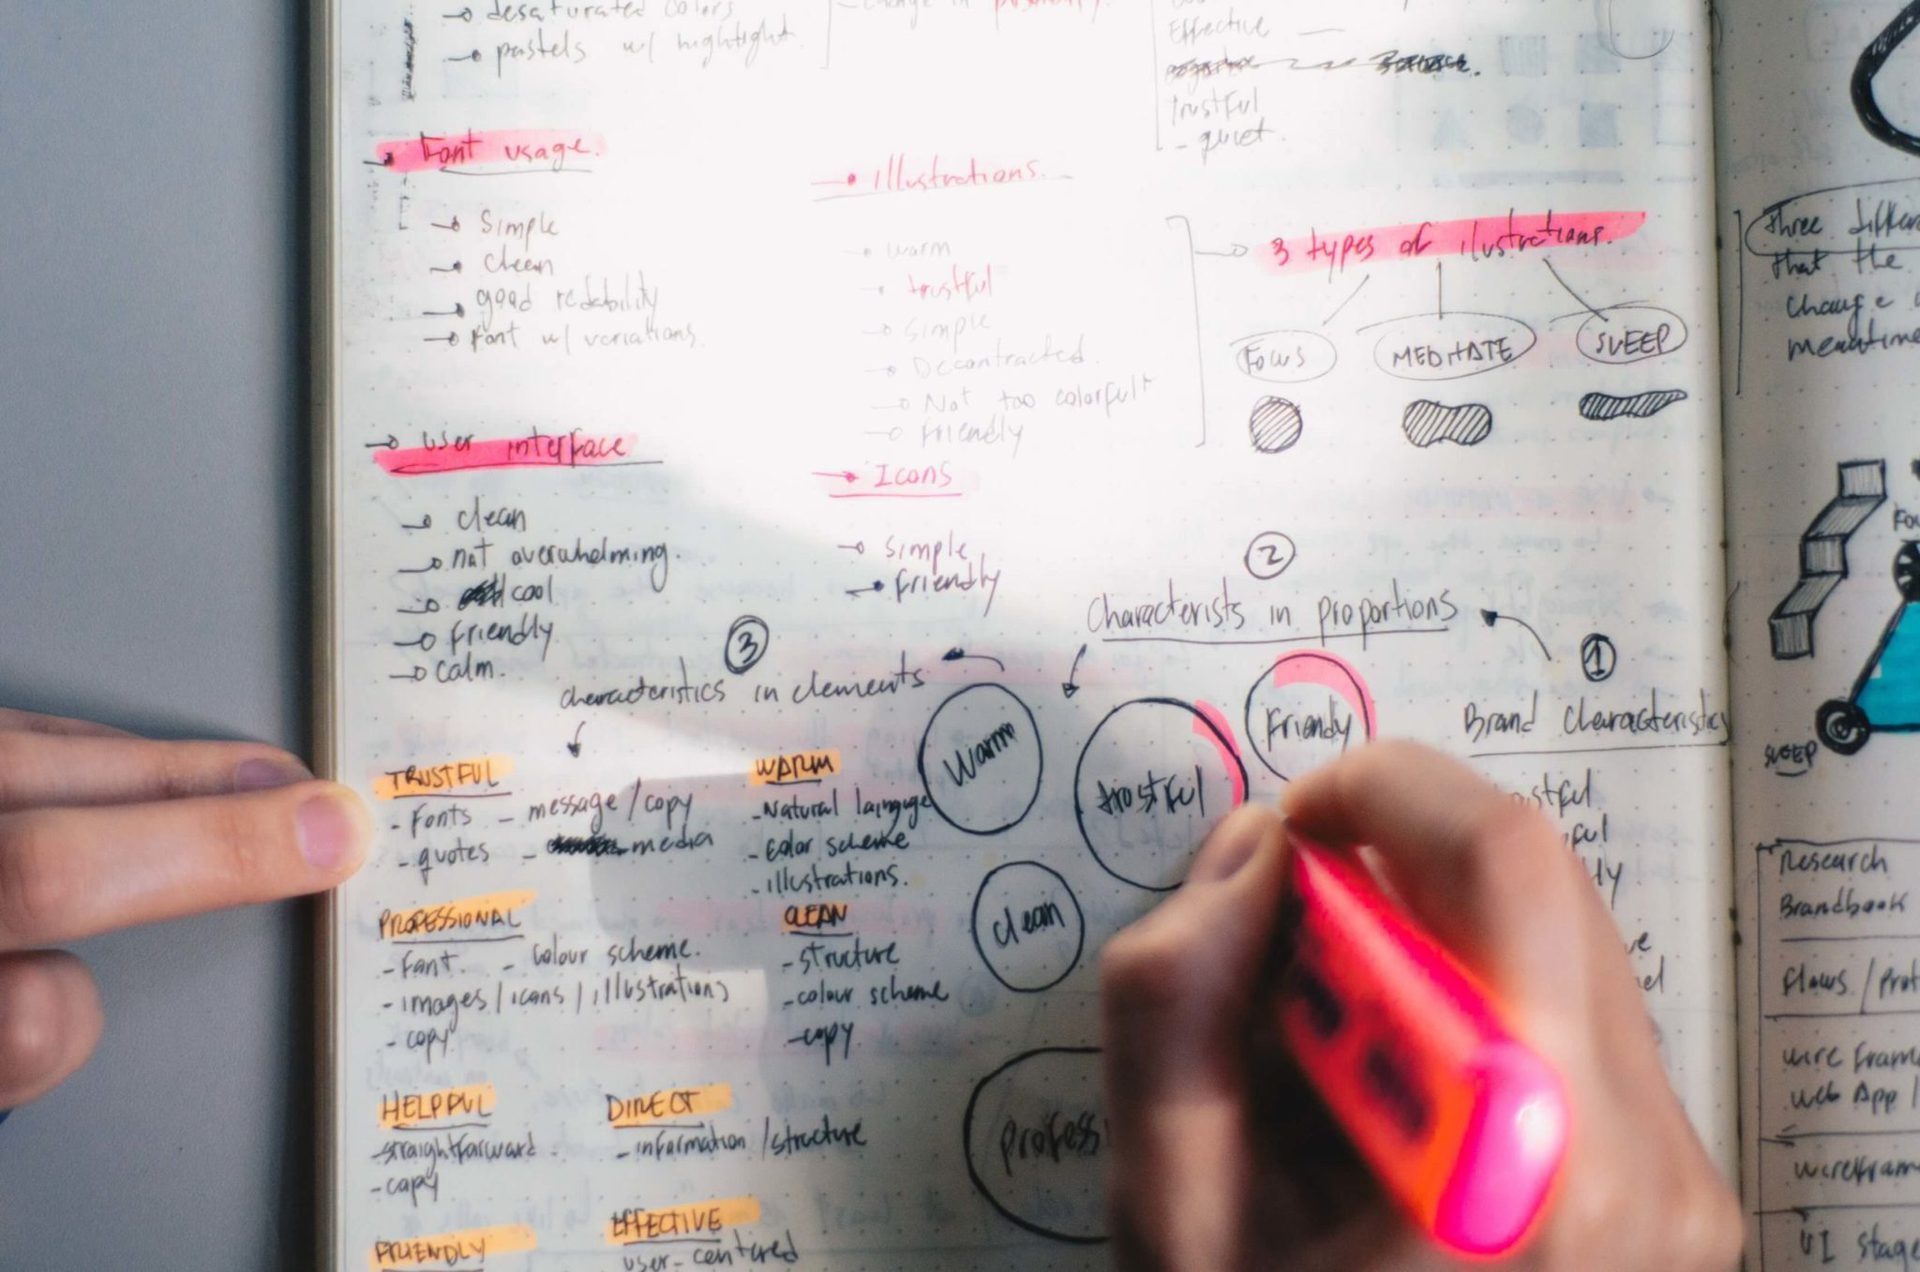 desaturated colors
pastels w/ hightlight.
Effective
trustful
- quiet.
Font usage.
Simple
clean
good redability
Font w/ variations.
user interface
clean
not overwhelming.
cool
friendly
calm.
illustrations.
warm
trustful
Simple
Decontracted.
Not too colorful
Friendly
Icons
simple
friendly
3 types of ilustrations.
Focus
MEDITATE
SLEEP
2
Characterists in proportions
1
Brand Characteristics
3
characteristics in elements
Warm
trostful
Friendly
clean
professi
TRUSTFUL
- Fonts - message/copy
- quotes - media
WARM
- Natural langugge
- Color scheme
- illustrations.
PROFESSIONAL
- Font. - colour scheme.
- images/icons/illustrations
- copy
CLEAN
- structure
- colour scheme
- copy
HELPFUL
- straightforward
- copy
DIRECT
- information/structure
FRIENDLY
EFFECTIVE
user-centered
three
that the
change
meantime
SLEEP
Research
Brandbook
Flows/Prot
wire fram
web App/
wirefram
UI stage